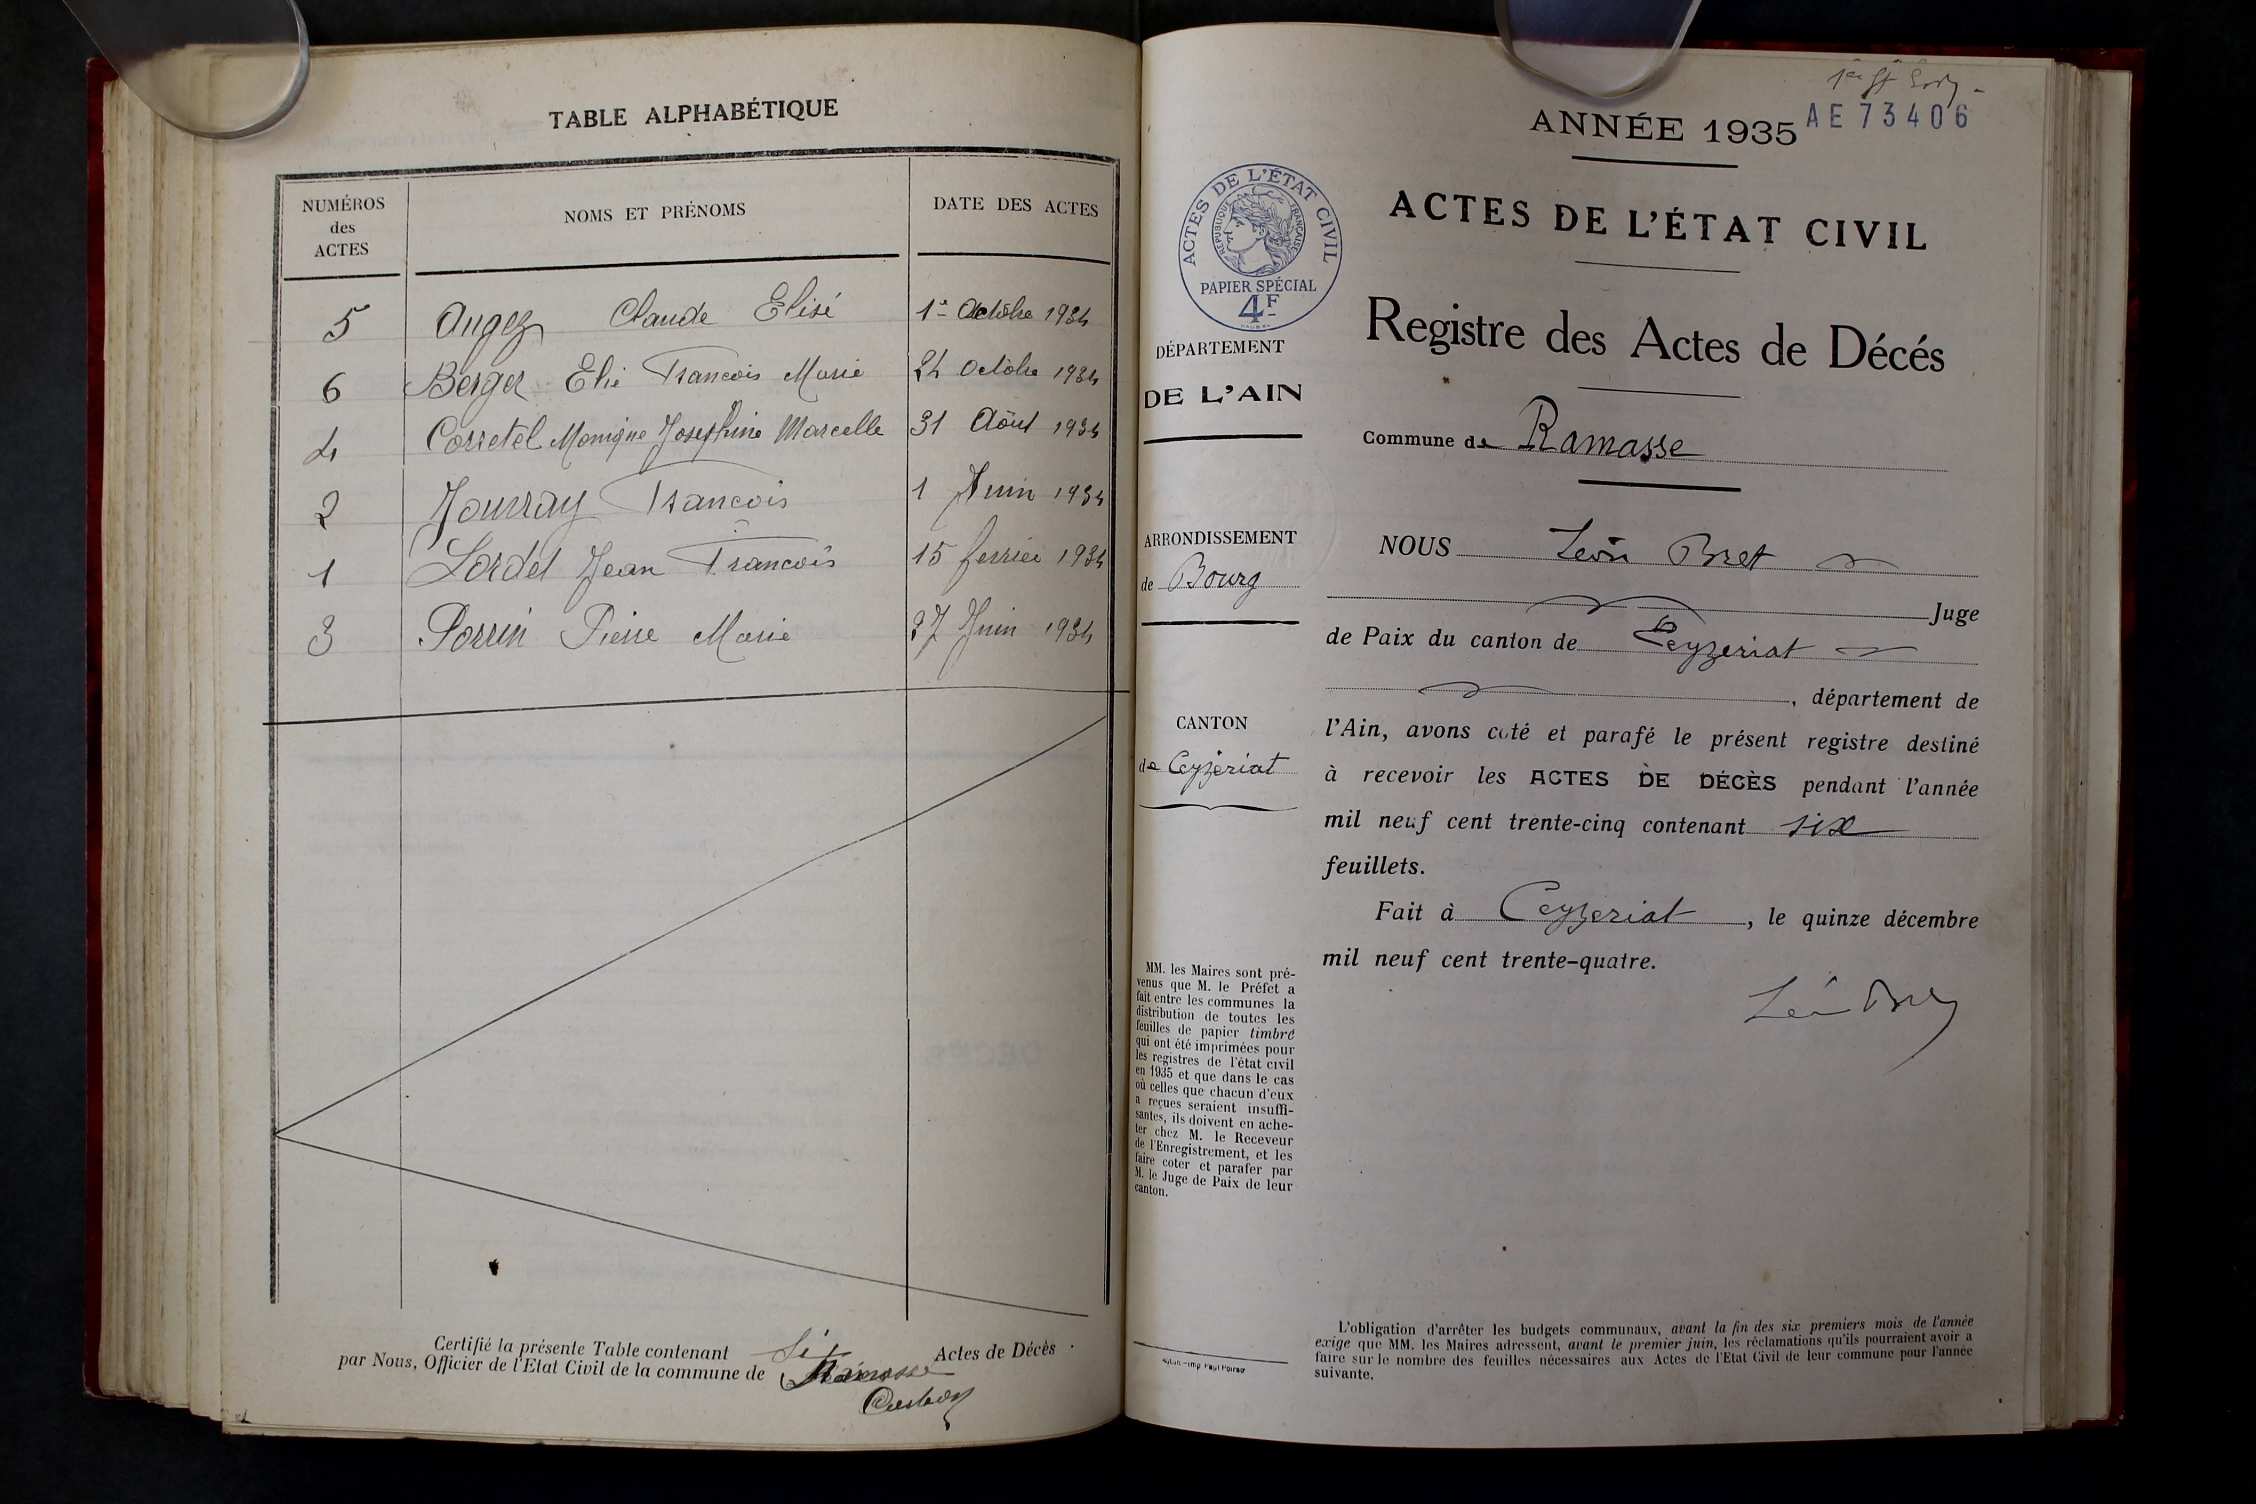 TABLE ALPHABÉTIQUE
NUMÉROS
des
ACTES
NOMS ET PRÉNOMS
DATE DES ACTES
5 Claude Elisé 1er Octobre 1934
6 Berger Elie François Marie 24 Octobre 1934
4 Corretel Monique Josephine Marcelle 31 Août 1934
2 Jourray François 1 Juin 1934
1 Lordel Jean François 15 fevrier 1934
3 Perrin Pierre Marie 27 Juin 1934
Certifié la présente Table contenant Six Actes de Décès
par Nous, Officier de l'Etat Civil de la commune de Ramasse
AE 73406
ANNÉE 1935
ACTES DE L'ÉTAT CIVIL
RÉPUBLIQUE FRANÇAISE
PAPIER SPÉCIAL
4F
ACTES DE L'ÉTAT CIVIL
Registre des Actes de Décés
DÉPARTEMENT
DE L'AIN
Commune de Ramasse
ARRONDISSEMENT
de Bourg
CANTON
de Ceyzériat
MM. les Maires sont pré-
venus que M. le Préfet a
fait entre les communes la
distribution de toutes les
feuilles de papier timbré
qui ont été imprimées pour
les registres de l'état civil
en 1935 et que dans le cas
où celles que chacun d'eux
a reçues seraient insuffi-
santes, ils doivent en ache-
ter chez M. le Receveur
de l'Enregistrement, et les
faire coter et parafer par
M. le Juge de Paix de leur
canton.
NOUS Léon Bret
Juge
de Paix du canton de Ceyzeriat
, département de
l'Ain, avons coté et parafé le présent registre destiné
à recevoir les ACTES DE DÉCÈS pendant l'année
mil neuf cent trente-cinq contenant six
feuillets.
Fait à Ceyzeriat, le quinze décembre
mil neuf cent trente-quatre.
Léon Bret
L'obligation d'arrêter les budgets communaux, avant la fin des six premiers mois de l'année
exige que MM. les Maires adressent, avant le premier juin, les réclamations qu'ils pourraient avoir a
faire sur le nombre des feuilles nécessaires aux Actes de l'Etat Civil de leur commune pour l'année
suivante.